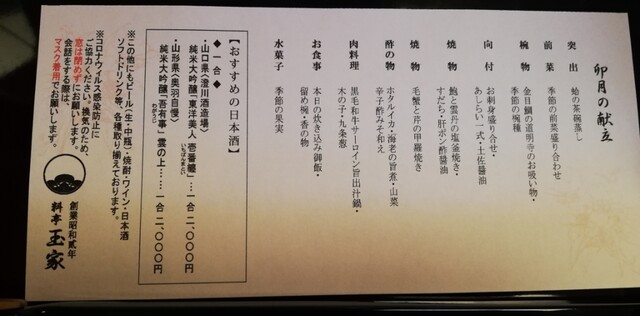 卯月の献立
突出　蛤の茶碗蒸し
前菜　季節の前菜盛り合わせ
椀物　金目鯛の道明寺のお吸い物・
季節の椀種
向付　お刺身盛り合せ・
あしらい一式・土佐醤油
焼物　鮑と雲丹の塩釜焼き・
すだち・肝ポン酢醤油
焼物　毛蟹と芹の甲羅焼き
酢の物　ホタルイカ・海老の旨煮・山菜
辛子酢みそ和え
肉料理　黒毛和牛サーロイン旨出汁鍋・
木の子・九条葱
お食事　本日の炊き込み御飯・
留め椀・香の物
水菓子　季節の果実
【おすすめの日本酒】
◆一合◆
・山口県〈澄川酒造場〉
純米大吟醸「東洋美人 壱番纏」…一合 二、〇〇〇円
いちばんまとい
・山形県〈奥羽自慢〉
純米大吟醸「吾有事」雲の上……一合 二、〇〇〇円
わがうじ
※この他にもビール(生・中瓶)・焼酎・ワイン・日本酒
ソフトドリンク等、各種取り揃えております。
※コロナウィルス感染防止に
ご協力ください。換気のため、
窓は閉めずにお願いします。
会話をする際は、
マスク着用でお願いします。
創業昭和貳年
料亭 玉家